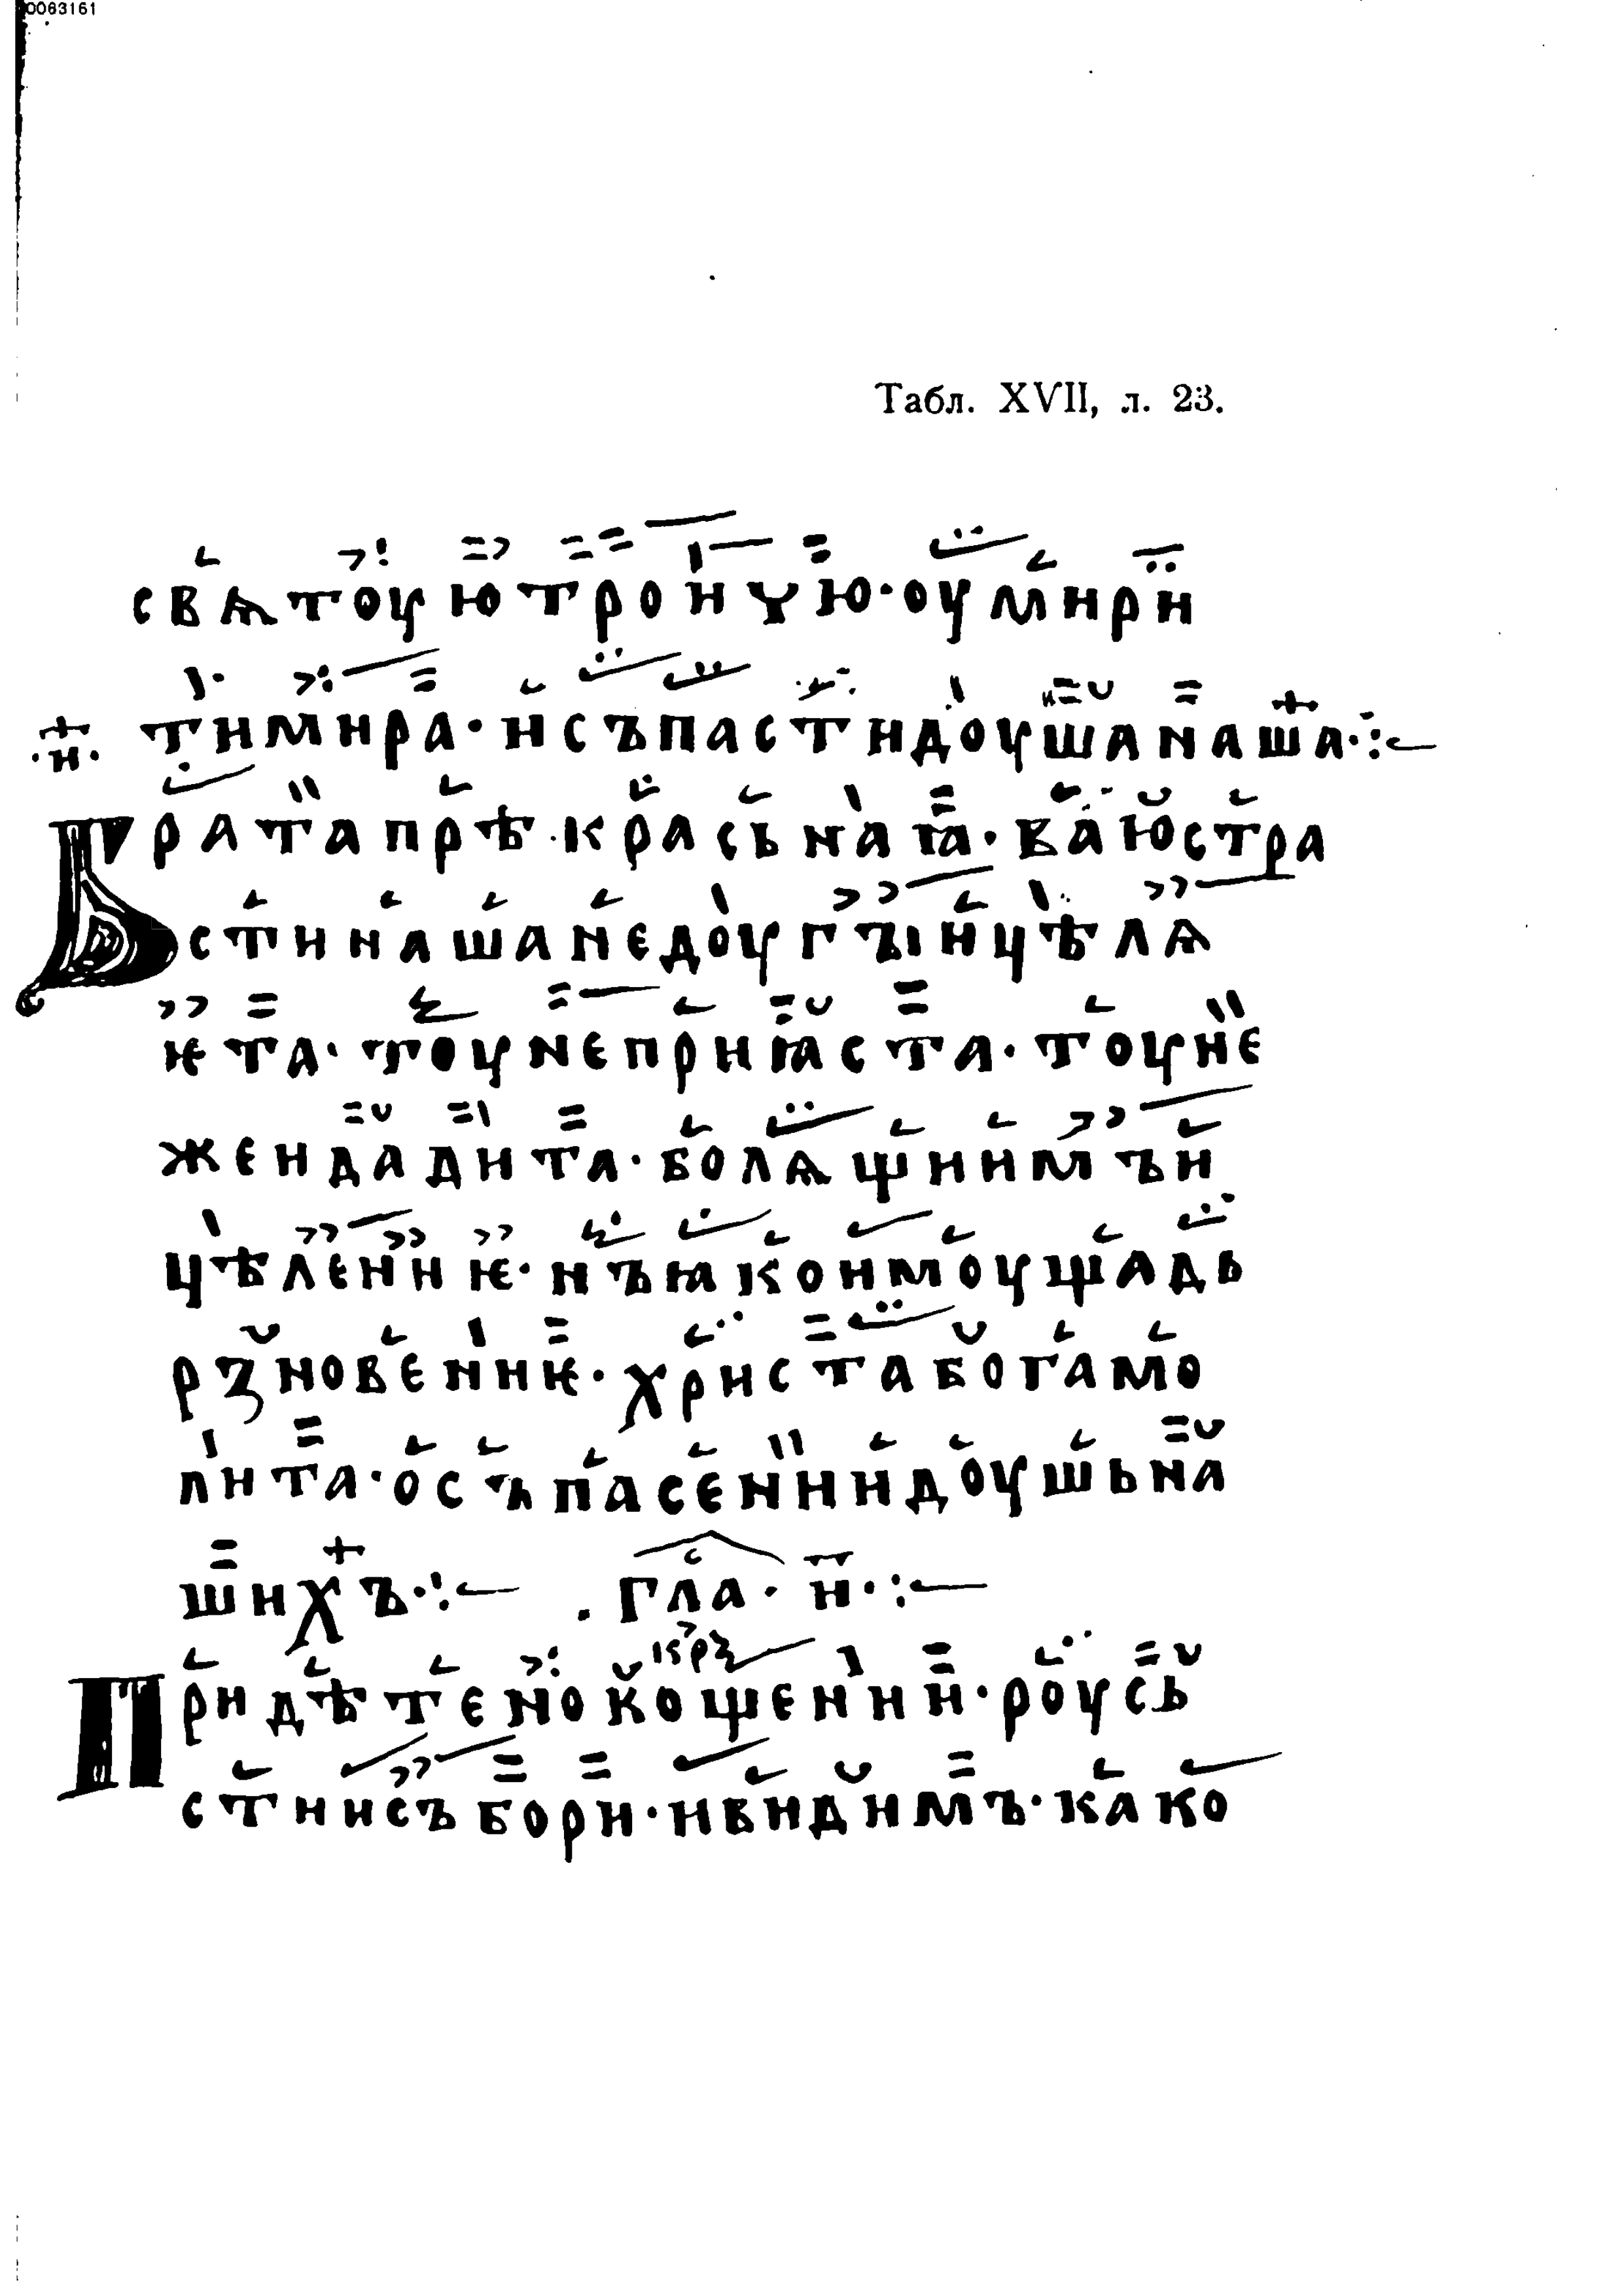 0063161
Табл. XVII, л. 23.
свѧтоуютроичую·оумири
тимира·исъпастидоушанаша·:
·и·
Братапрѣкрасьнаꙗ·ваюстра
стинашанедоугъıицѣлѧ
ѥта·тоунеприꙗста·тоуне
жендадита·болѧщиимъи
цѣлениѥ·нъꙗкоимоущадь
рзновениѥ·христабогамо
лита·осъпасениидоушьна
шихъ·: .гла·и·:
крꙁ
Придѣтеновокошении·роусь
стиисъбори·ивидимъ·како